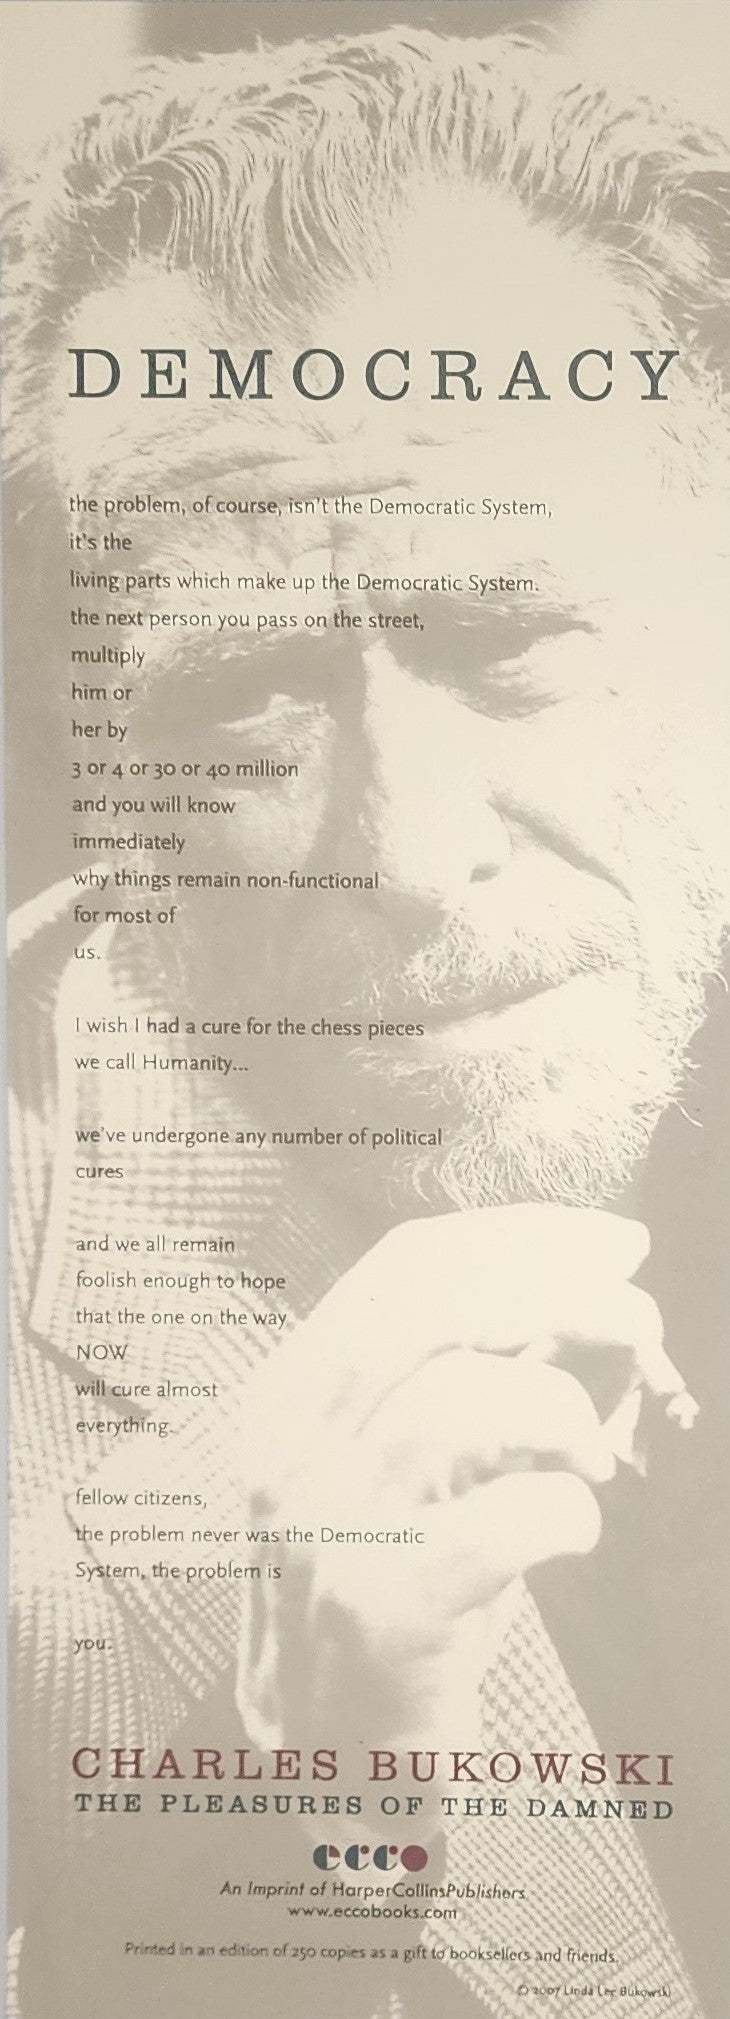 DEMOCRACY
the problem, of course, isn't the Democratic System,
it's the
living parts which make up the Democratic System.
the next person you pass on the street,
multiply
him or
her by
3 or 4 or 30 or 40 million
and you will know
immediately
why things remain non-functional
for most of
us.
I wish I had a cure for the chess pieces
we call Humanity...
we've undergone any number of political
cures
and we all remain
foolish enough to hope
that the one on the way
NOW
will cure almost
everything.
fellow citizens,
the problem never was the Democratic
System, the problem is
you.
CHARLES BUKOWSKI
THE PLEASURES OF THE DAMNED
ecco
An Imprint of HarperCollinsPublishers
www.eccobooks.com
Printed in an edition of 250 copies as a gift to booksellers and friends.
© 2007 Linda Lee Bukowski